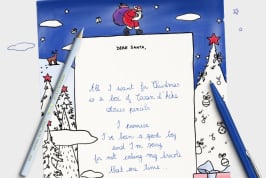 DEAR SANTA,
All I want for Christmas
is a box of Caran d'Ache
colour pencils
I promise
I've been a good boy
and I'm sorry
for not eating my
that one time